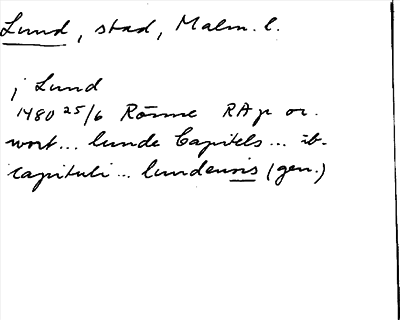 Lund, stad, Malm. l.
j Lund
1480 25/6 Rönne RAp or.
wort... lunde Capitels... ib.
capituli... lundensis (gen.)